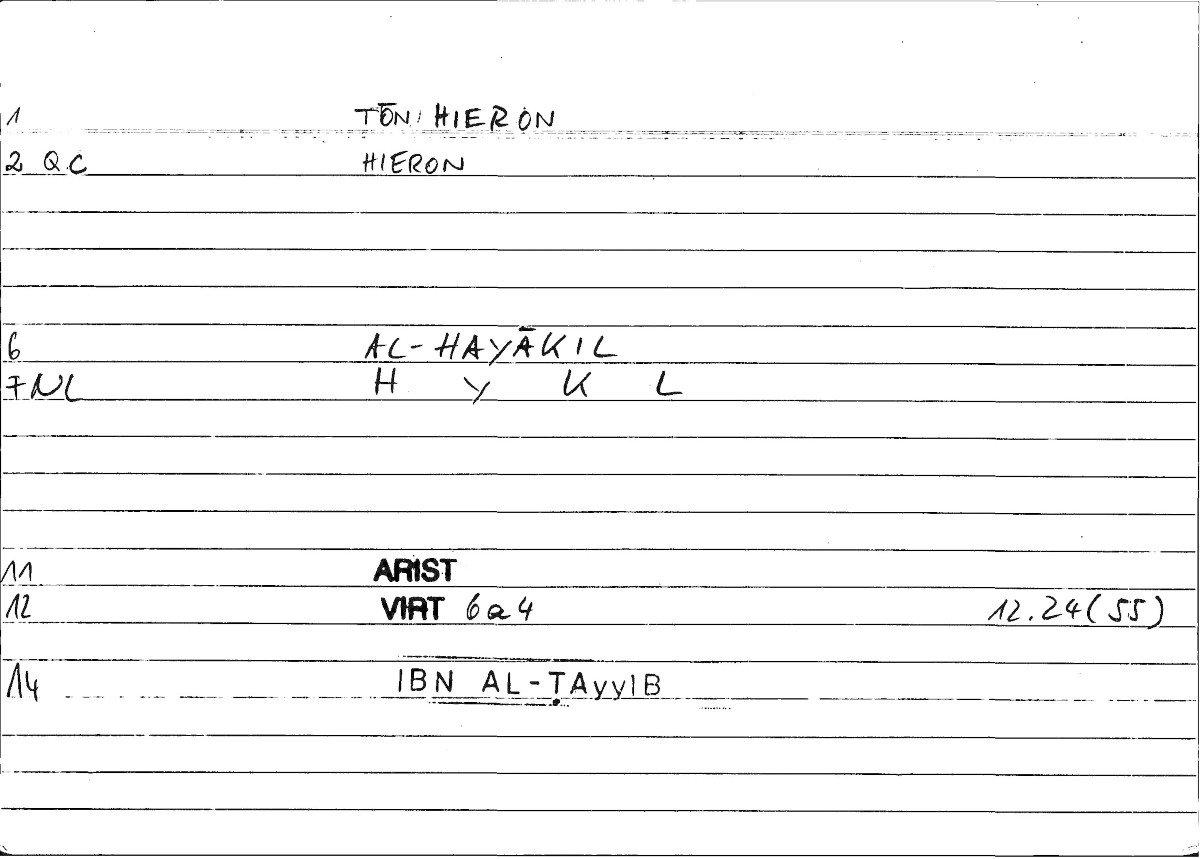 1 TŌN HIERON
2 Q.C HIERON
6 AL-HAYĀKIL
7 NL H Y K L
11 ARIST
12 VIRT 6a4 12.24(55)
14 IBN AL-ṬAyyIB